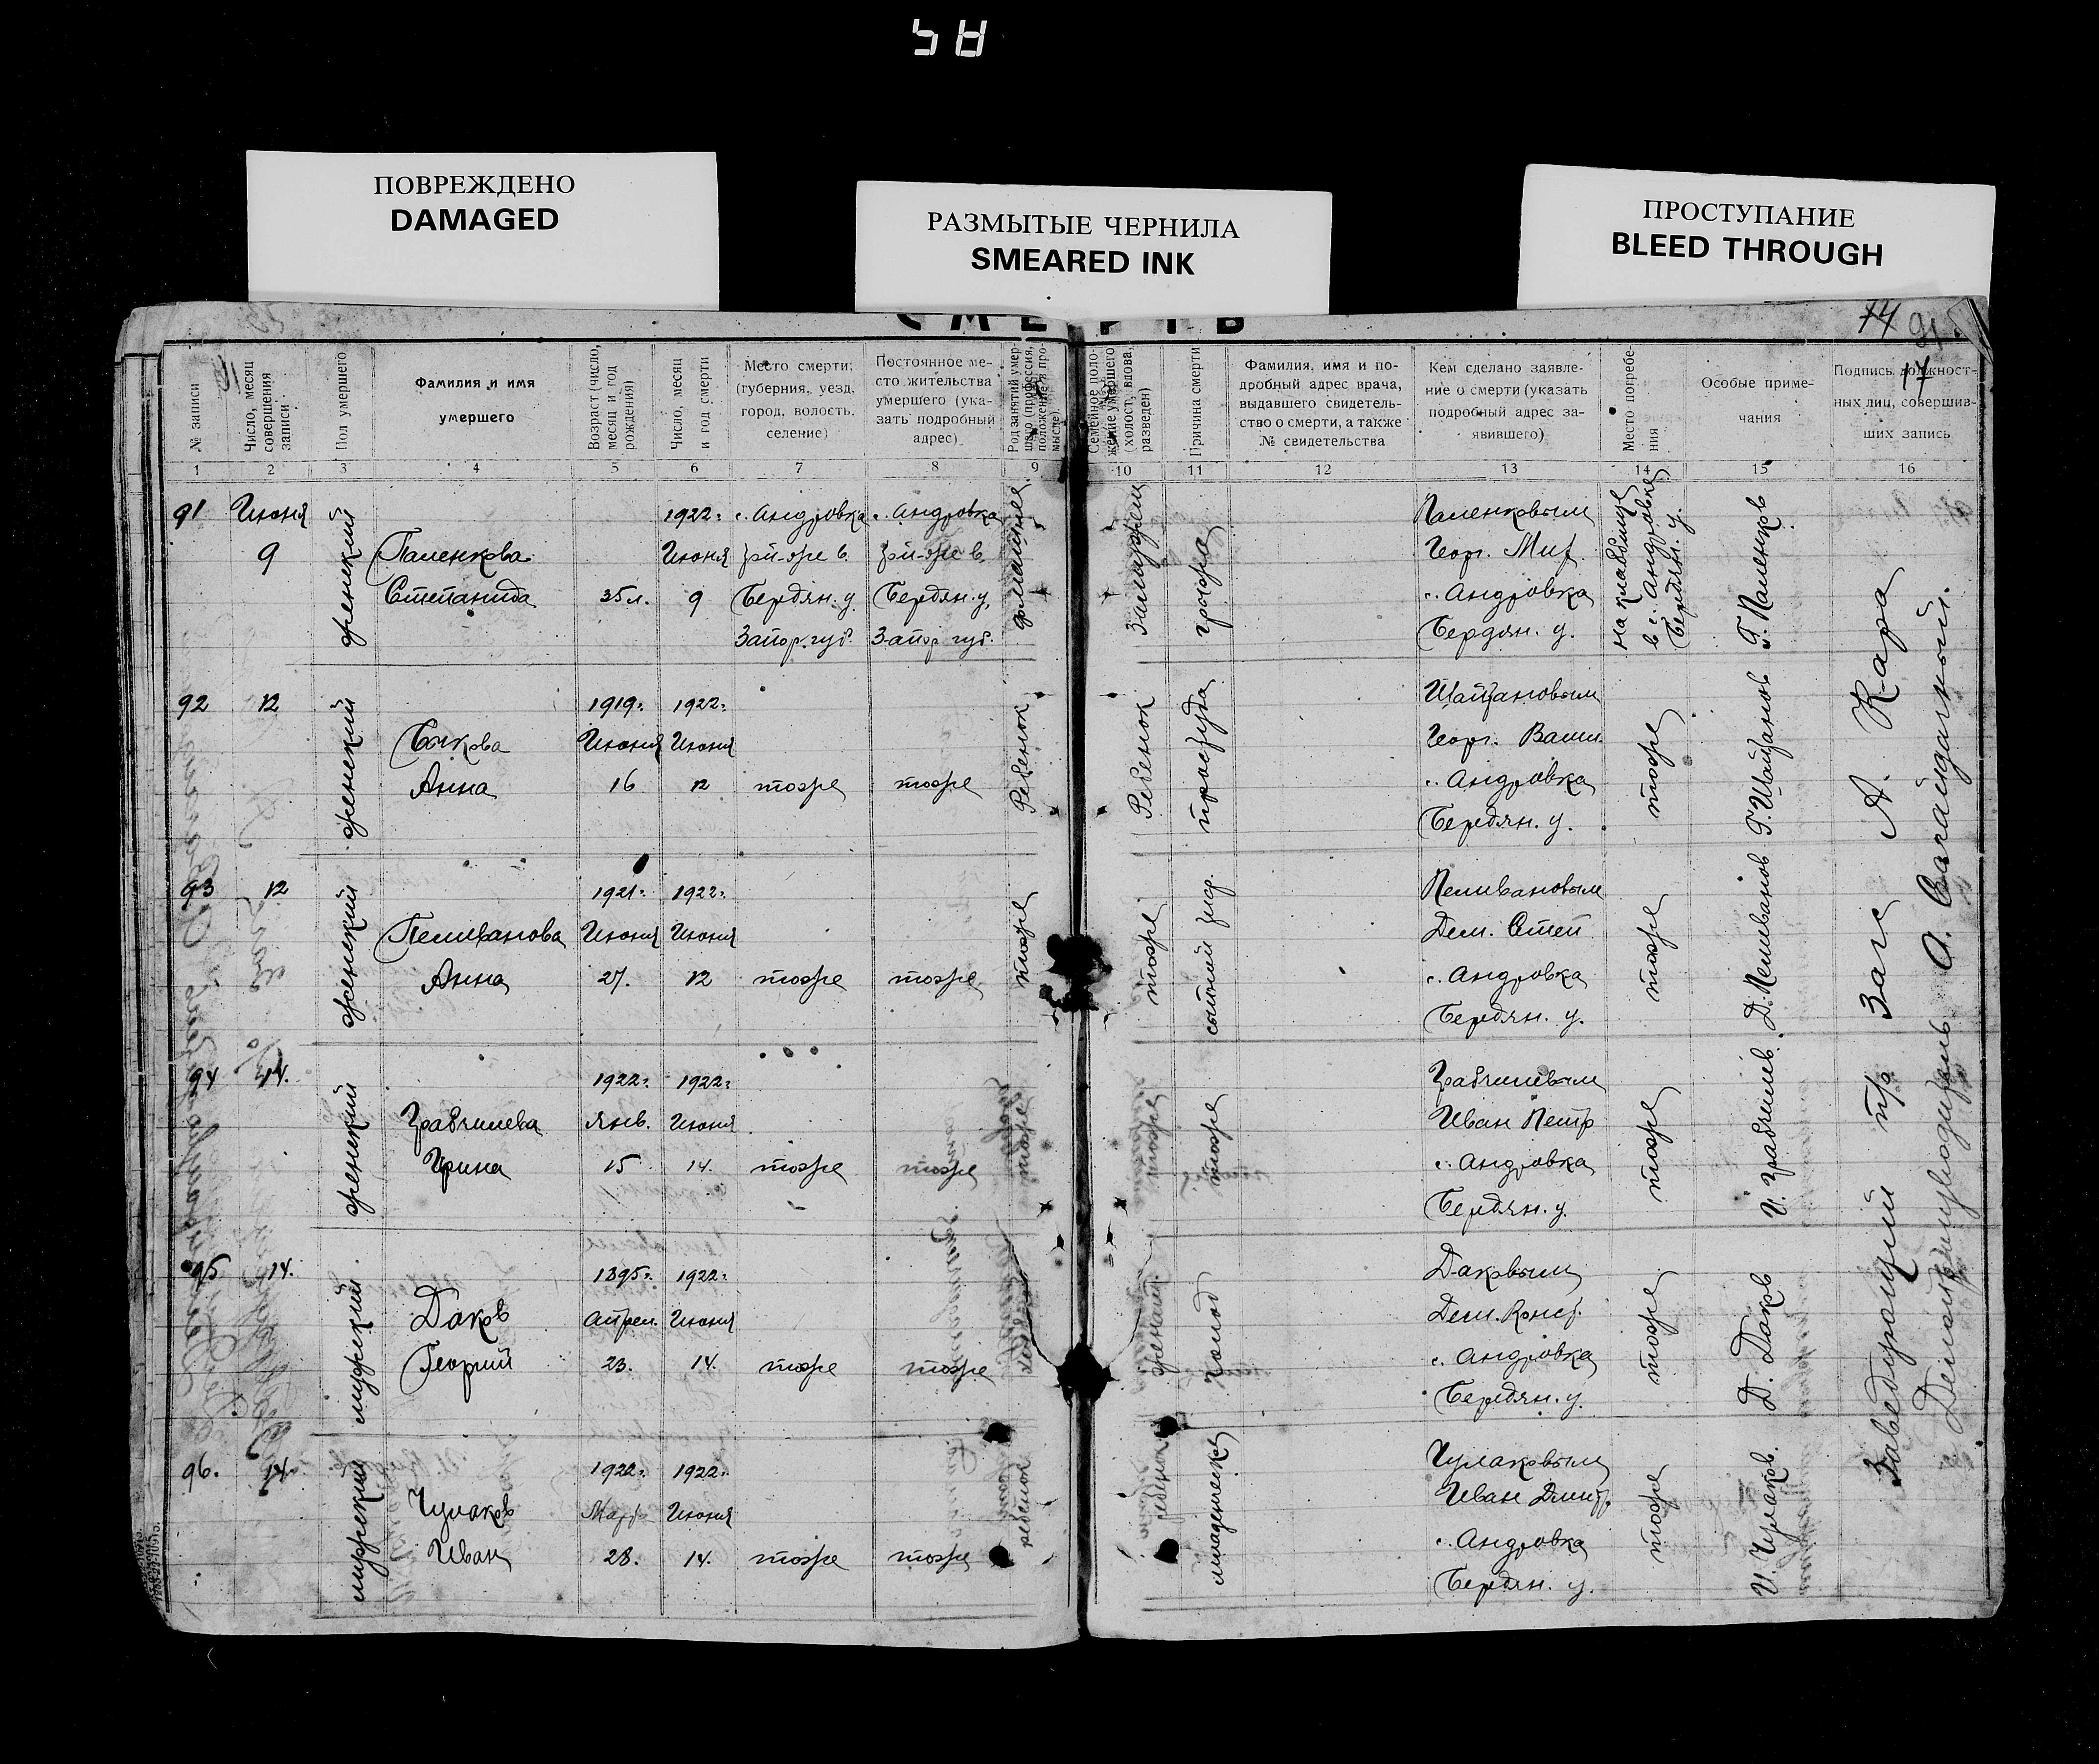 58
ПОВРЕЖДЕНО
DAMAGED
РАЗМЫТЫЕ ЧЕРНИЛА
SMEARED INK
ПРОСТУПАНИЕ
BLEED THROUGH
СМЕРТЬ
74
91
17
№ записи
Число, месяц совершения записи
Пол умершего
Фамилия и имя умершего
Возраст (число, месяц и год рождения)
Число, месяц и год смерти
Место смерти: (губерния, уезд, город, волость, селение)
Постоянное место жительства умершего (указать подробный адрес)
Род занятий умершего (профессия, положение в промысле)
Семейное положение умершего (холост, вдова, разведен)
Причина смерти
Фамилия, имя и подробный адрес врача, выдавшего свидетельство о смерти, а также № свидетельства
Кем сделано заявление о смерти (указать подробный адрес заявившего)
Место погребения
Особые примечания
Подпись должностных лиц, совершивших запись
1 2 3 4 5 6 7 8 9 10 11 12 13 14 15 16
91
Июня
9
женский
Паленкова
Степанида
35 л.
1922г.
Июня
9
с. Андровка
Бердян. у.
Запор. губ.
с. Андровка
Бердян. у.
Запор. губ.
домашнее
Замужем
Паленковым
Георг. Мих.
с. Андровка
Бердян. у.
на кладбище
в с. Андровке
Бердян. у.
Г. Паленков
92
12
женский
Бычкова
Анна
1919г.
Июня
16
1922г.
Июня
12
тоже
тоже
Ребенок
Ребенок
простуда
Георг. Васил.
с. Андровка
Бердян. у.
тоже
93
12
женский
Пеливанова
Анна
1921г.
Июня
27.
1922г.
Июня
12
тоже
тоже
тоже
тоже
сыпной
Пеливановым
Дем. Степ
с. Андровка
Бердян. у.
тоже
Д. Пеливанов
94
14.
женский
Ирина
1922г.
Янв.
15
1922г.
Июня
14.
тоже
тоже
тоже
тоже
тоже
Иван Петр
с. Андровка
Бердян. у.
тоже
95
14.
мужский
Даков
Георгий
1895г.
Апрел.
23.
1922г.
Июня
14.
тоже
тоже
женат
голод
Даковым
Дем. Конст.
с. Андровка
Бердян. у.
тоже
Д. Даков
96.
14.
мужский
Чулаков
Иван
1922г.
Марта
28.
1922г.
Июня
14.
тоже
тоже
ребенок
младенческ
Чулаковым
Иван Дмитр.
с. Андровка
Бердян. у.
тоже
И. Чулаков.
Заведующий п/о Загс А. Кара
Делопроизводитель